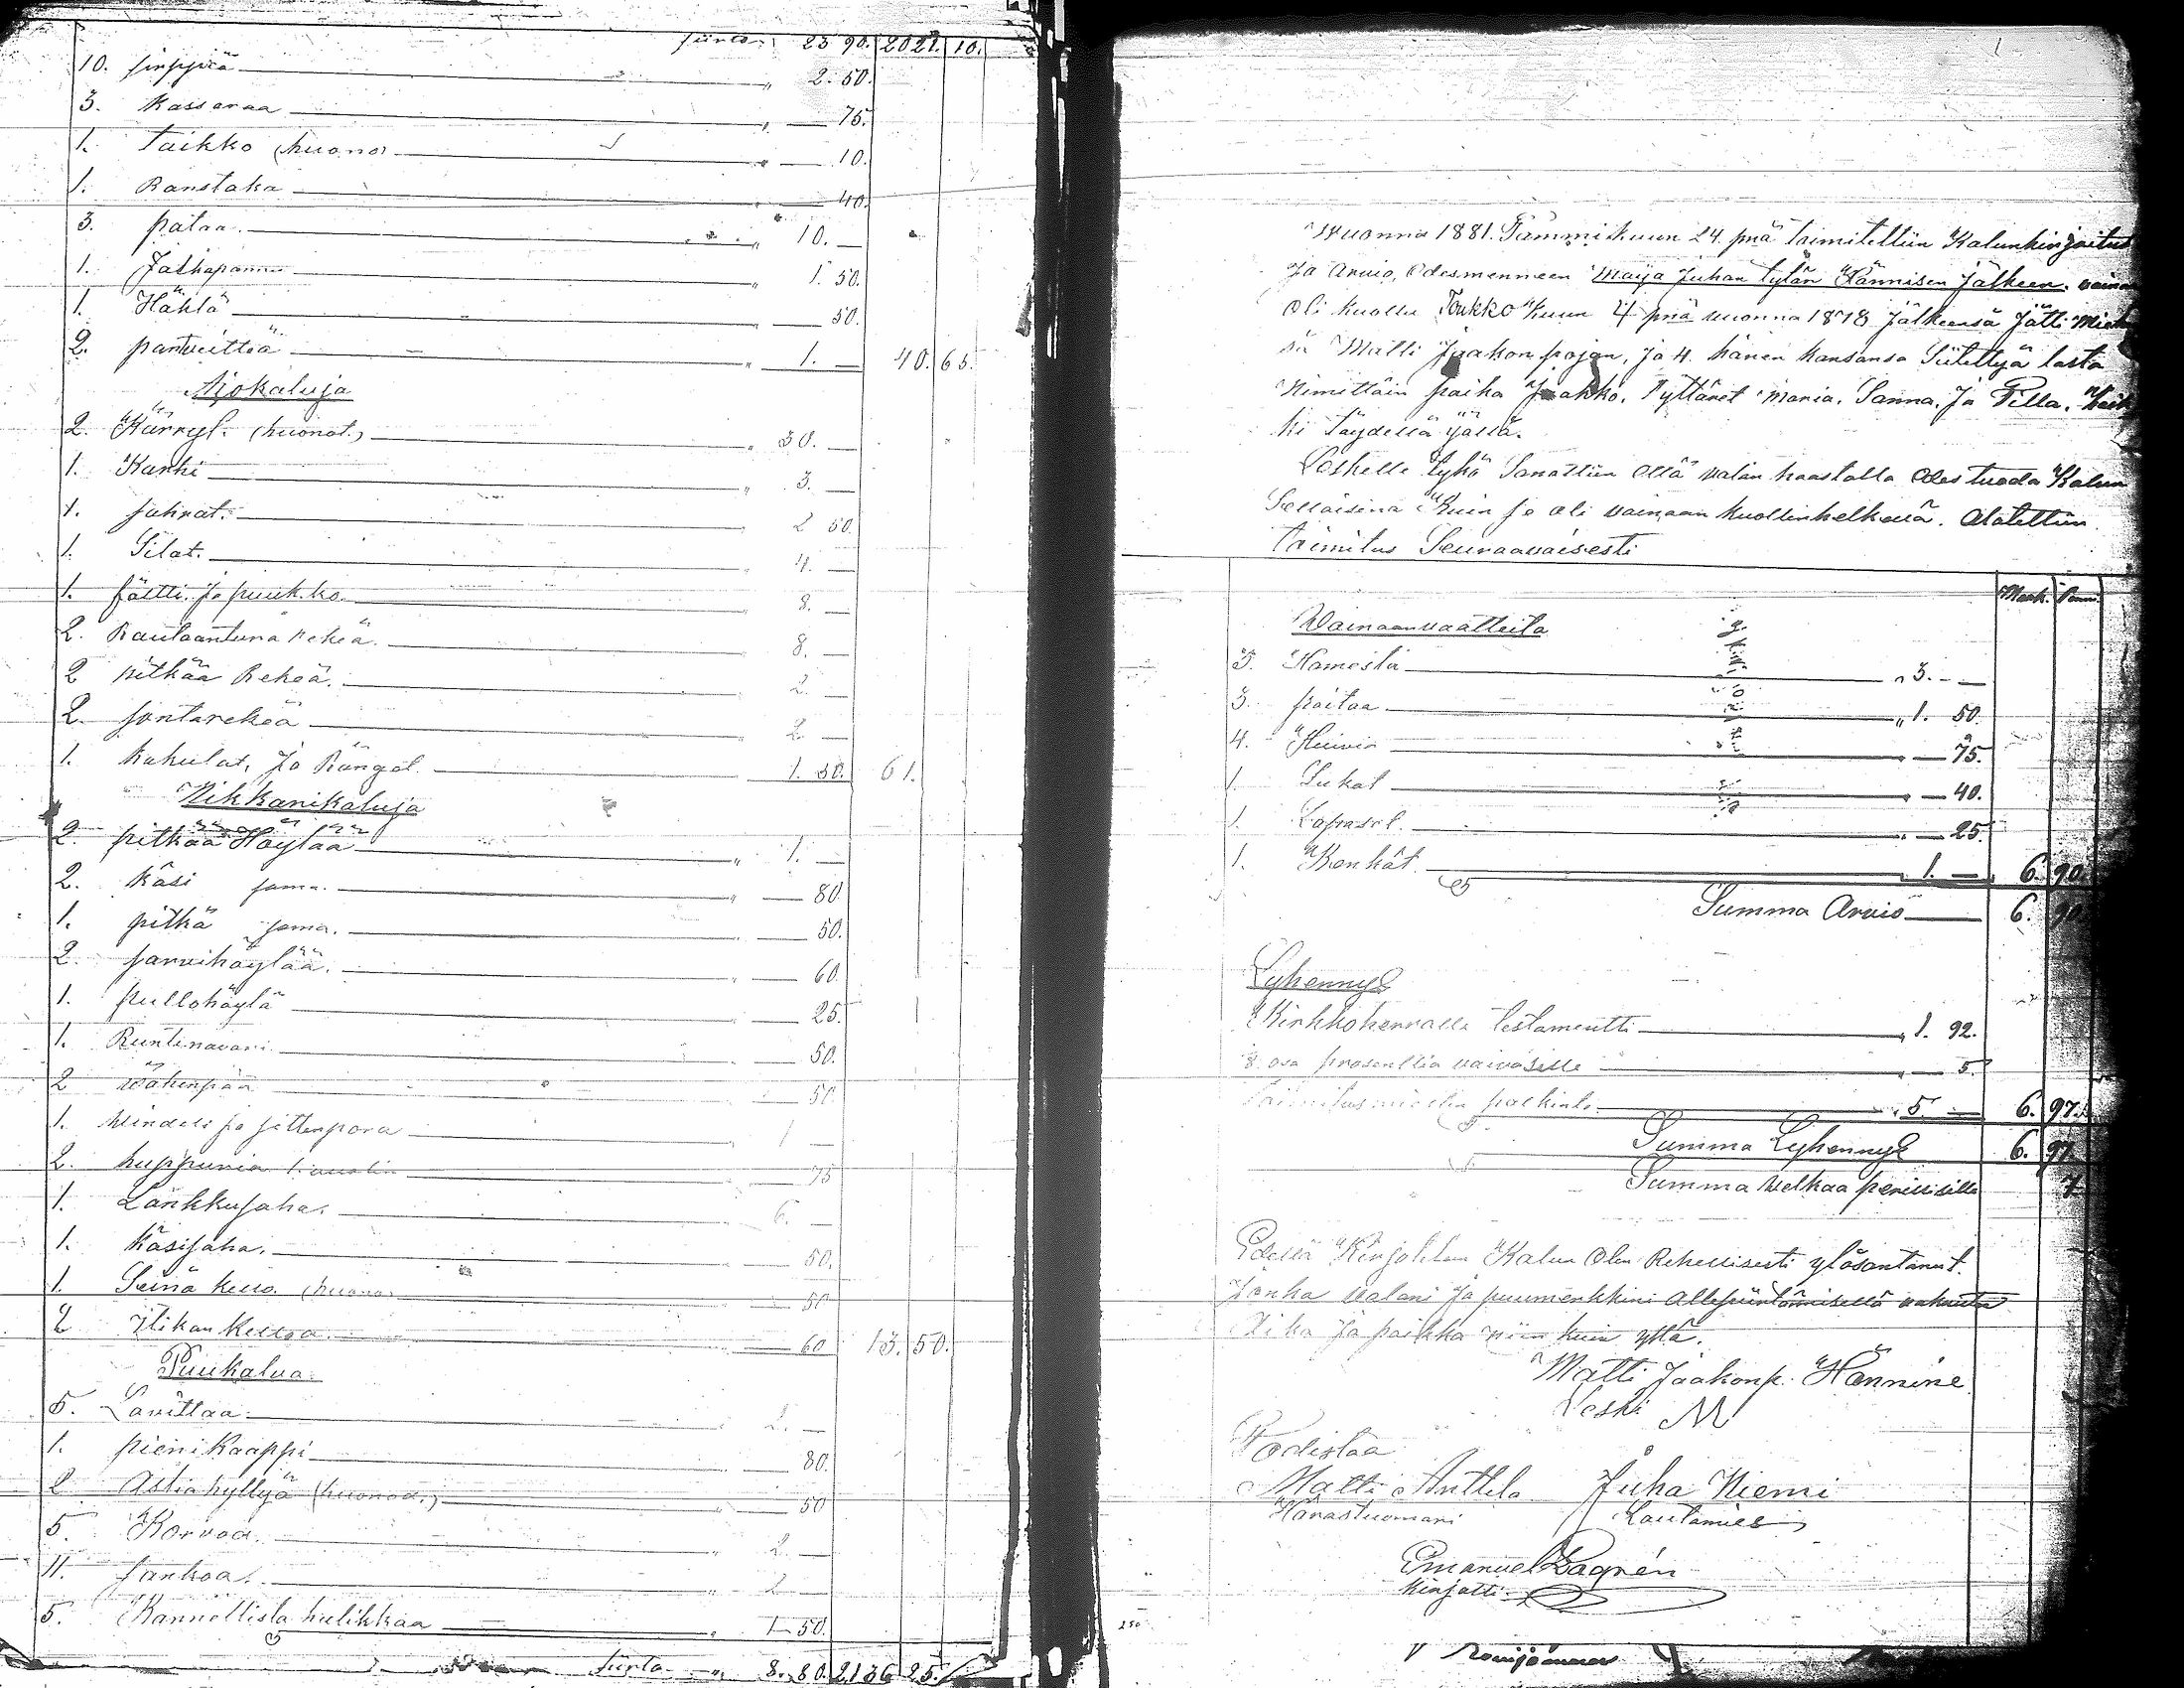 siirto 23 90. 2021. 10.
10. sirppiä " 2. 50.
3. Kassaraa " — 75.
1. Taikko (huono) " — 10.
1. Ranstaka — 40.
3. pataa. " 10. —
1. Jalkapannu " 1. 50.
1. Hähla " — 50.
2. pantveittiä " 1. — 40. 65.
Ajokaluja
2. Kärryt. (huonot.) " 30. —
1. Kanki " 3. —
1. satrat. 2 50.
1. Silat. " 4. —
1. fältti. ja puukko. " 8. —
2. Rautaantura rekeä. 8. —
2 pitkää Rekeä. " 2. —
2. sontarekeä " 2. —
1. Kakulat, Ja Rängöt. 1. 50. 61.
Nikkarikaluja
2. pitkää Höylää " 1. —
2. Käsi sama. " — 80.
1. pitkä sama. " — 50.
2. sarvihöylää. " — 60.
1. pullohöylä " — 25.
1. Runtinavari. " — 50.
2 — 50.
1. Windeli ja sitterpora " 1 —
2. huppuria " — 75
1. Lankkusaha. " 6. —
1. Käsisaha. " — 50.
1. Seinä kello. (huono) " — 50
2 Itikan kelloa. — 60 13. 50.
Puukalua.
5. Lavittaa. " 2. —
1. pieni Kaappi " — 80.
2 Astia hyllyä (huonoa.) " — 50
5. Korvoa. " 2. —
11. sankoa. " 2 —
5. Kannellista kulikkaa " 1 50.
siirto " 8. 80. 2136 25.
Wuonna 1881. Tammikuun 24. pnä toimitettiin Kalunkirjoitus
Ja Arvio, Edesmenneen Maija Juhan tytän Hännisen Jälkeen. vainaa
Oli kuollu Toukko kuun 4 pnä vuonna 1878 Jälkeensä Jätti Miehen
sä Matti Jaakon pojan, Ja 4. hänen kansansa Siitettyä lasta
Nimittäin poika Jaakko. Tyttäret Maria. Sanna. Ja Tilla. Kaik
ki Täydellä ijällä.
Leskelle Tykö Sanottiin Ollä valan haastolla Edes tuoda Kalun
Sellaisena Kuin se oli vainaan kuollinhetkellä. Alotettiin
toimitus Seuraavaisesti
Mark. Penni.
Wainaanvaatteita
3. Hamesta " 3. — —
3. paitaa " 1. 50.
4. Huivia " — 75.
1. Sukat " — 40.
1. Lapaset. " — 25.
1. Kenkät. " 1. — 6. 90.
Summa Arvio 6. 90.
Lyhennys
Kirkkoherralle testamentti " 1. 92.
8 osa prosenttia vaivasille " — 5.
Toimitusmiesten palkinto " 5. — 6. 97.
Summa Lyhennys 6. 97.
Summa Velkaa perillisille 7
Edellä Kirjoitetun Kalun Olen Rehellisesti ylösantanut.
Jonka valani Ja puumerkkini Allepiirtämisellä vakuutan
Aika Ja paikka niin kuin yllä.
Matti Jaakonp. Hännine
Leski M
Todistaa
Matti Anttila Juha Niemi
Härastuomari Lautamies
Emanuel Dagrén
Kirjotti
250